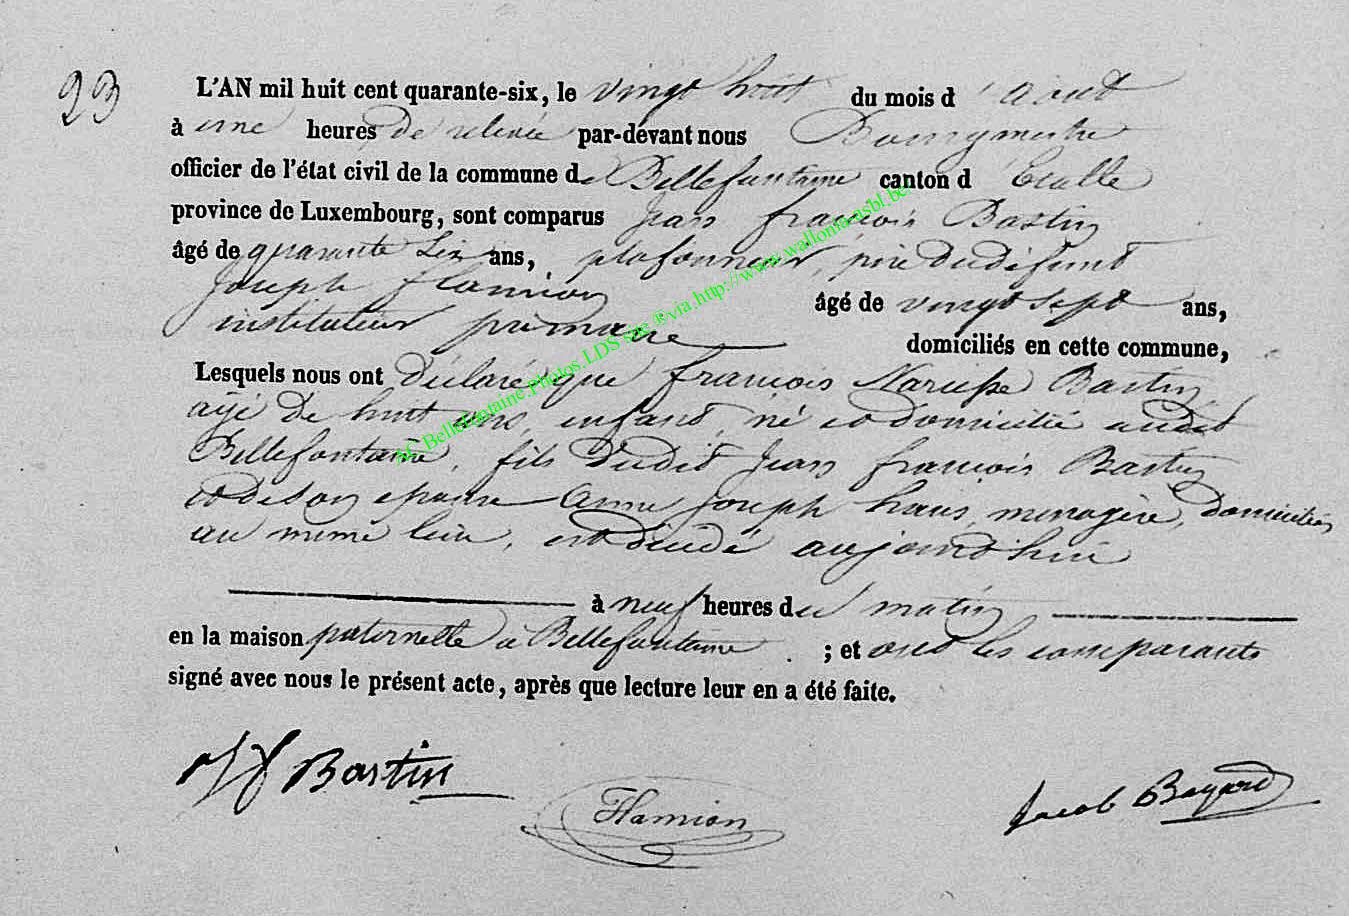 23
L'AN mil huit cent quarante-six, le vingt huit du mois d'août
à une heures de relevée par-devant nous Bourgmestre
officier de l'état civil de la commune de Bellefontaine canton d'Etalle
province de Luxembourg, sont comparus Jean françois Bastin
âgé de quarante six ans, plafonneur, père du défunt
Joseph flamion âgé de vingt sept ans,
instituteur primaire domiciliés en cette commune,
Lesquels nous ont déclaré que françois Bastin
agé de huit ans, enfant, né et domicilié audit
Bellefontaine, fils dudit Jean françois Bastin
et de son epouse anne Joseph hans, menagère, domiciliés
au même lieu, est décédé aujourd'hui
à neuf heures du matin
en la maison paternelle à Bellefontaine ; et ont les comparants
signé avec nous le présent acte, après que lecture leur en a été faite.
JF Bastin
Flamion
Jacob Bayard
AC.Bellefontaine.Photos.LDS site ®via http://www.wallonia-asbl.be